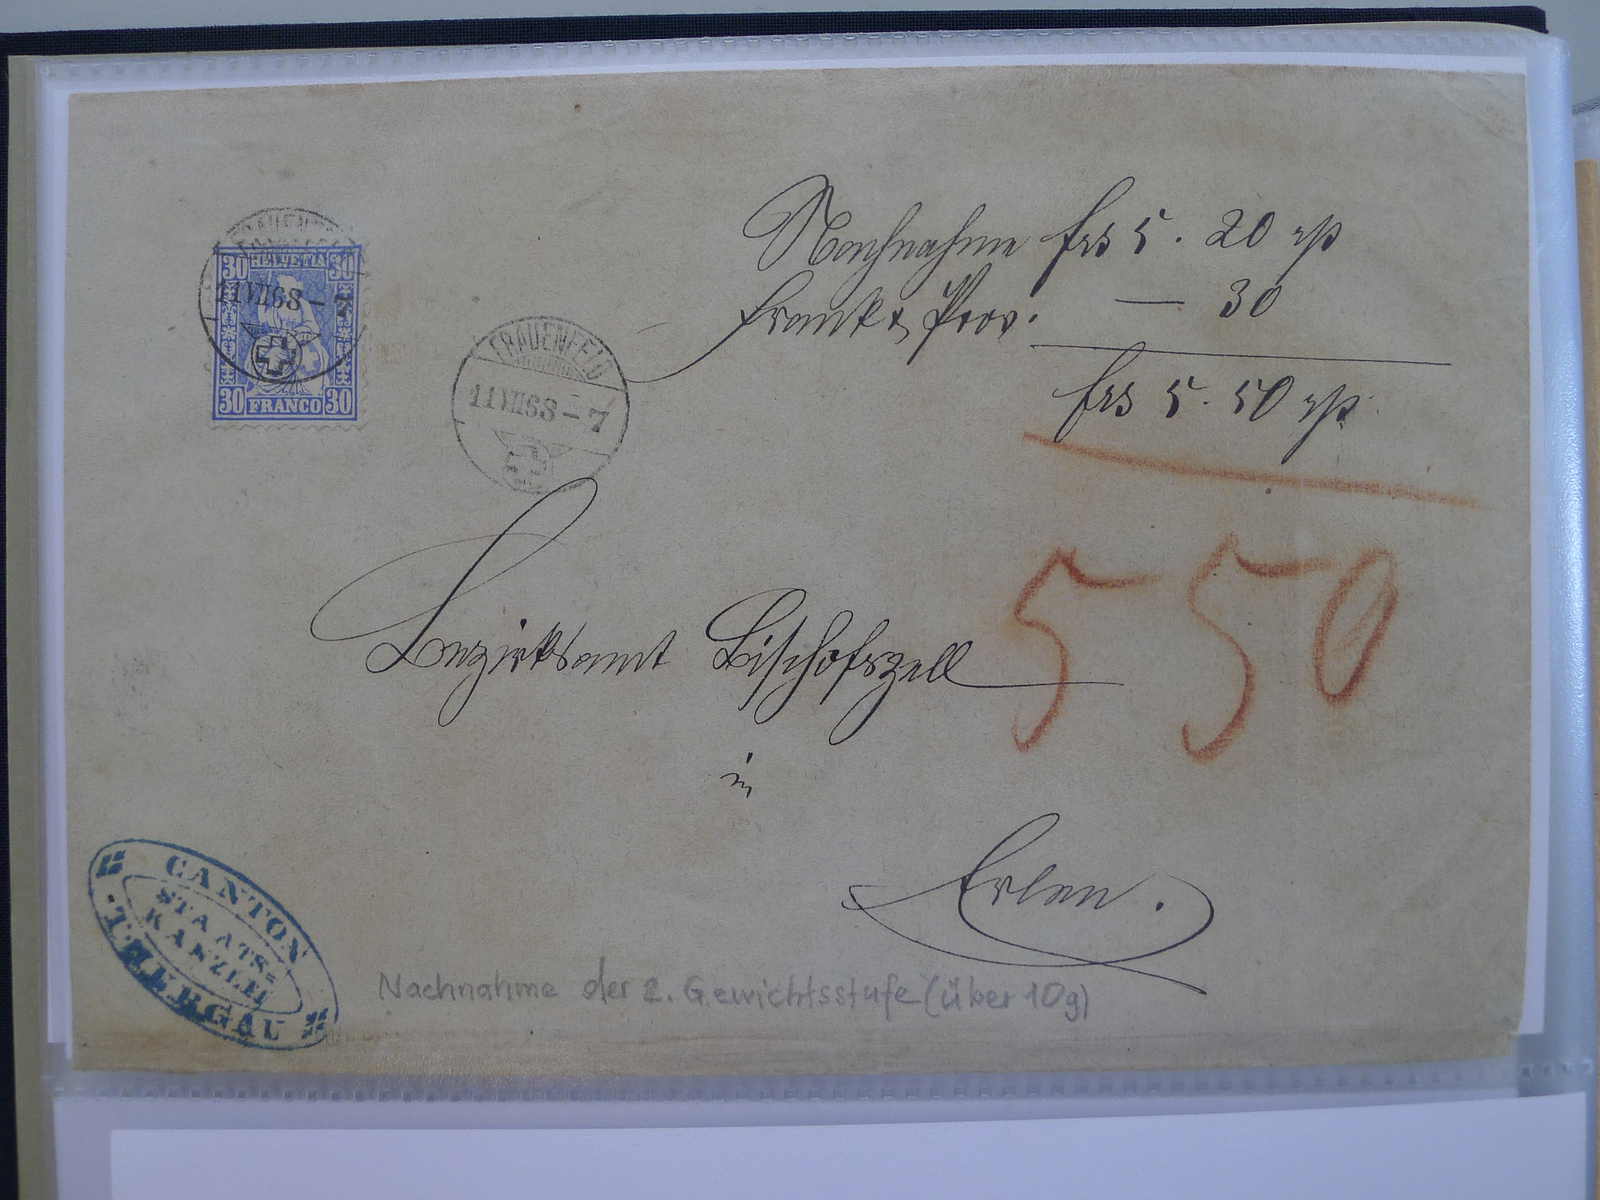 FRAUENFELD
30 HELVETIA 30
11 VII 68 - 7
30 FRANCO 30
FRAUENFELD
11 VII 68 - 7
Nachnahme frs 5. 20 rp
Frank & Prov. — 30
frs 5. 50 rp.
5 50
Bezirksamt Bischofszell
in
Erlen.
CANTON
STAATS=
KANZLEI
THURGAU
Nachnahme der 2. Gewichtsstufe (über 10g)